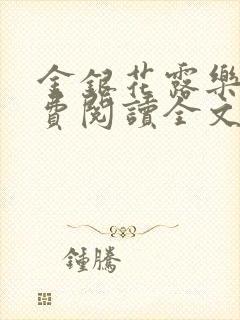 金銀花露樂
費閱讀全文
鍾騰